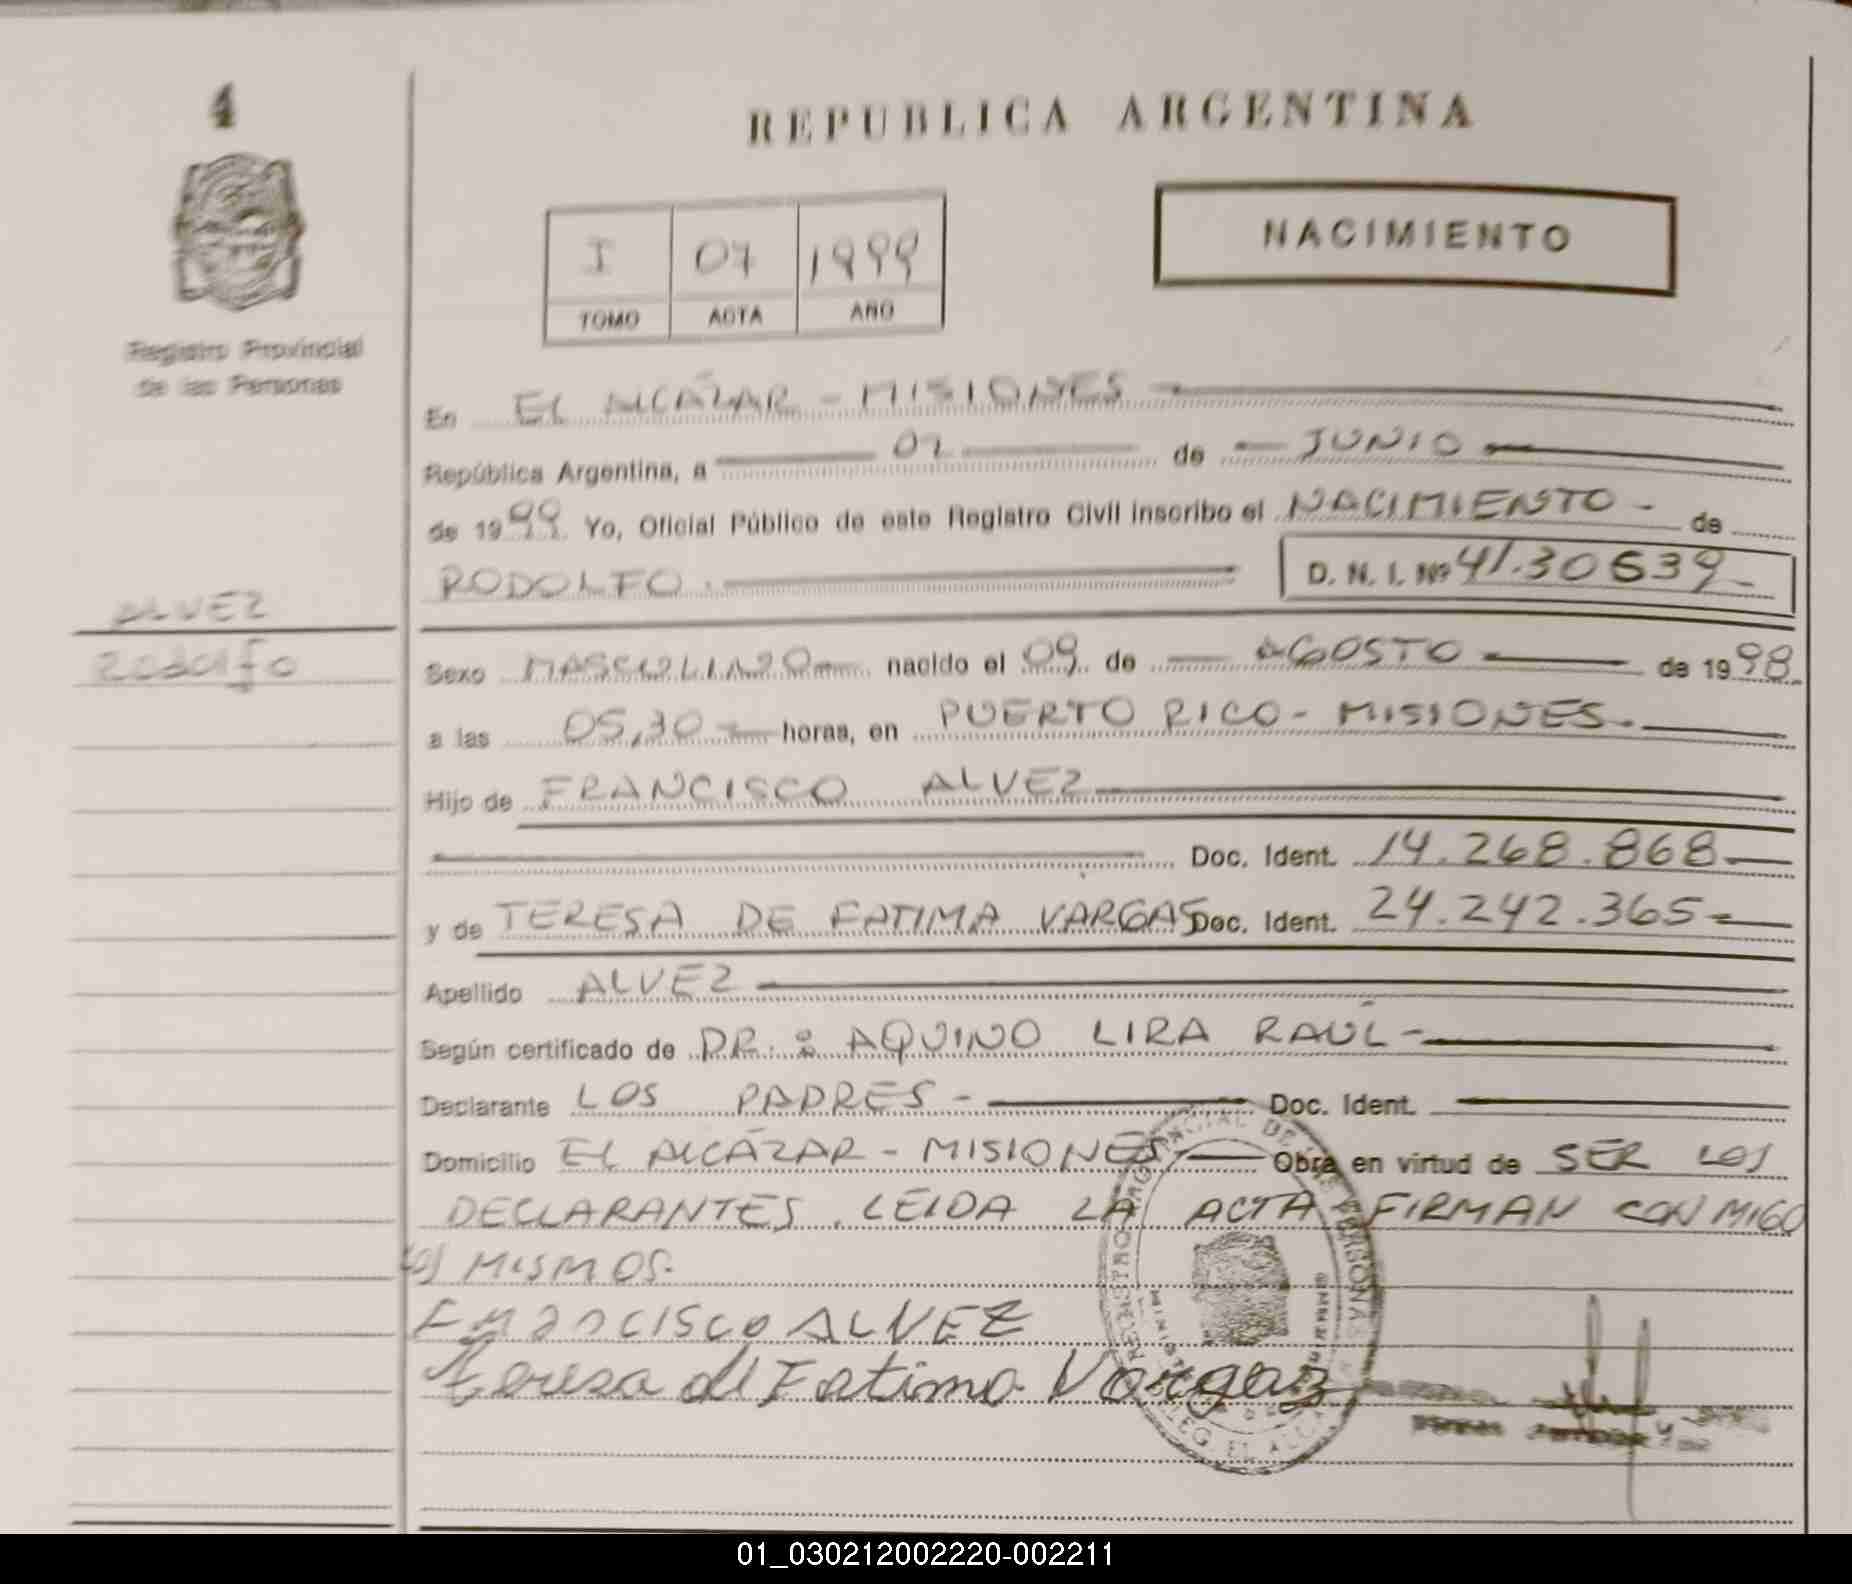 4
REPUBLICA ARGENTINA
NACIMIENTO
I 07 1999
TOMO ACTA AÑO
Registro Provincial
de las Personas
En EL ALCÁZAR - MISIONES
República Argentina, a 02 de JUNIO
de 1999 Yo, Oficial Público de este Registro Civil inscribo el NACIMIENTO - de
RODOLFO. D. N. I. Nº 41.30 639
ALVEZ
Rodolfo
Sexo MASCULINO nacido el 09 de AGOSTO de 1998
a las 05,30 horas, en PUERTO RICO - MISIONES.
Hijo de FRANCISCO ALVEZ
Doc. Ident. 14.268.868
y de TERESA DE FATIMA VARGAS Doc. Ident. 24.242.365
Apellido ALVEZ
Según certificado de DR.: AQUINO LIRA RAÚL -
Declarante LOS PADRES - Doc. Ident.
Domicilio EL ALCÁZAR - MISIONES Obra en virtud de SER LOS
DECLARANTES. LEIDA LA ACTA FIRMAN CONMIGO
LOS MISMOS.
FRANCISCO ALVEZ
teresa de Fatima Vargaz
01_030212002220-002211